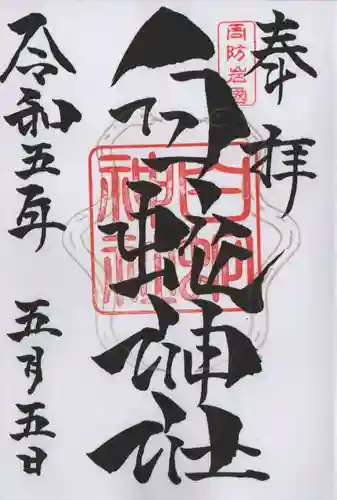 奉拝
周防岩国
白蛇神社
白蛇神社
令和五年
五月五日